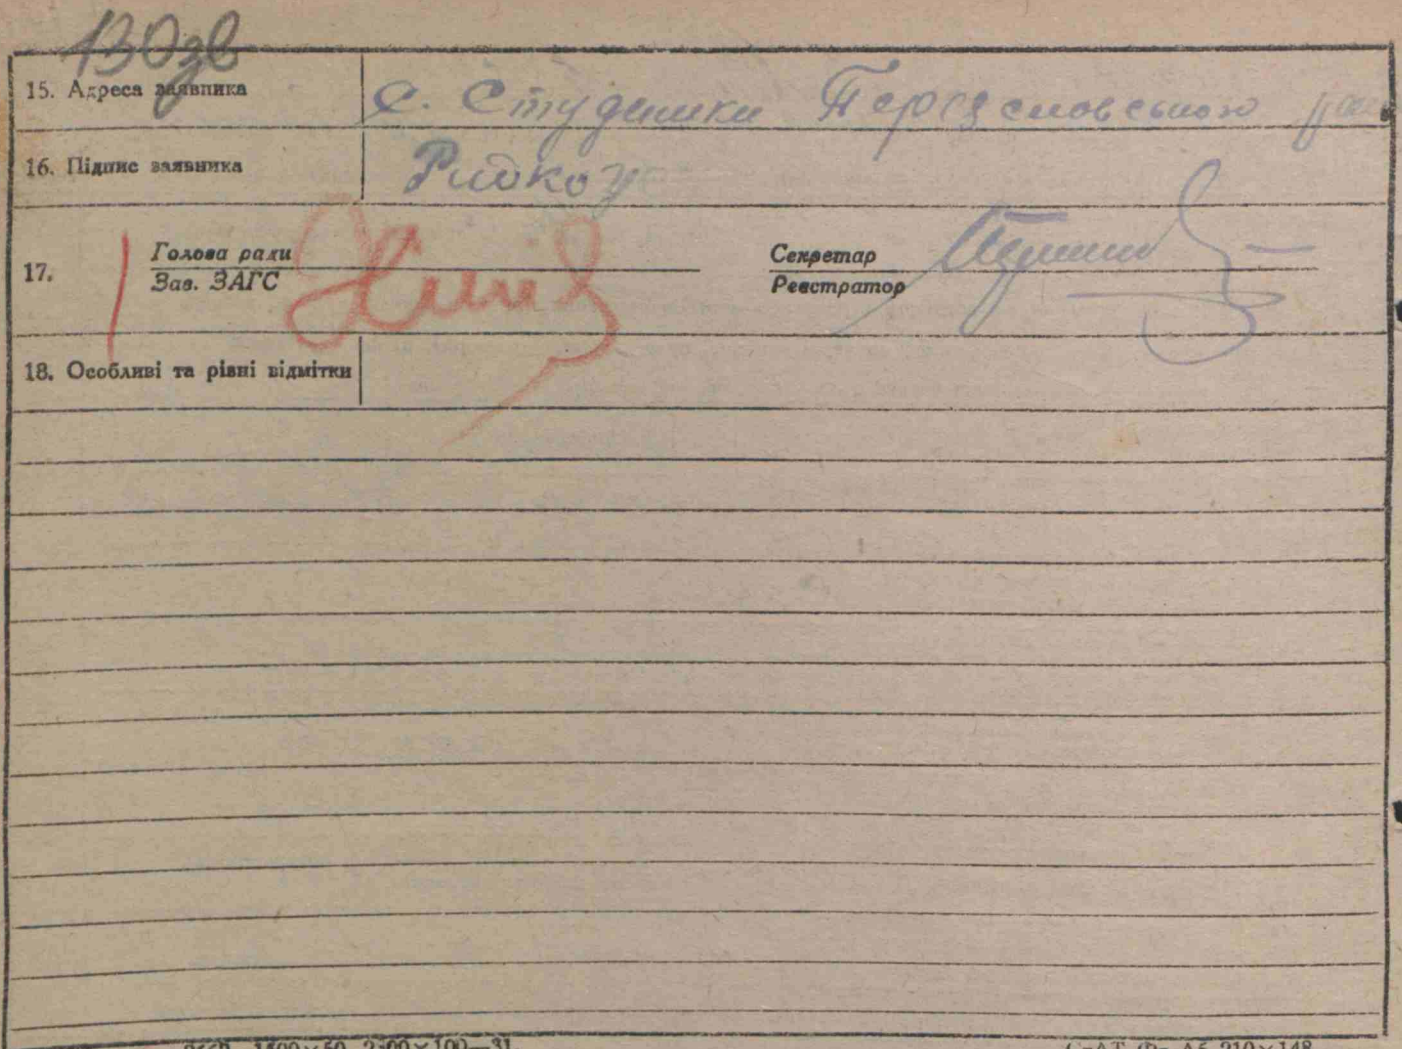 130зв
15. Адреса заявника с. Студеники Переяславського
16. Підпис заявника Ридкоу
17. Голова ради
Зав. ЗАГС
Секретар
Реєстратор
18. Особливі та різні відмітки